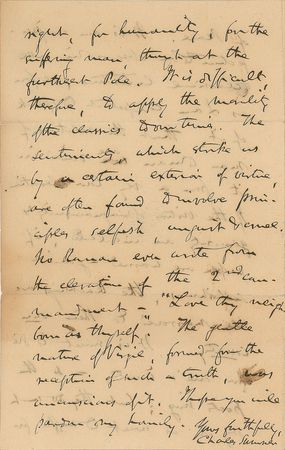 right, for humanity, for the
suffering man, though at the
furthest Pole. It is difficult,
therefore, to apply the morality
of the classics to our time. The
sentiments, which strike us
by a certain exterior of virtue,
are often found to involve prin-
ciples selfish unjust & cruel.
No Roman ever wrote from
the elevation of the 2nd com-
mandment – "Love thy neigh
bor as thyself." The gentle
nature of Virgil, formed for the
reception of such a truth, was
unconscious of it. I hope you will
pardon my homily.
Yours faithfully,
Charles Sumner